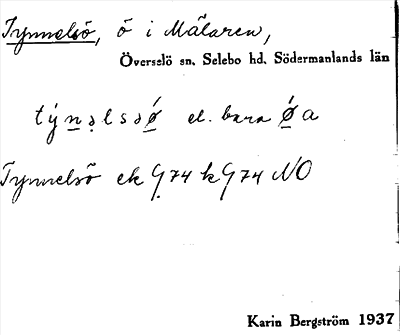 Tynnelsö, ö i Mälaren,
Överselö sn. Selebo hd. Södermanlands län
el. bara øa
Tynnelsö ek G 74 k G 74 NO
Karin Bergström 1937